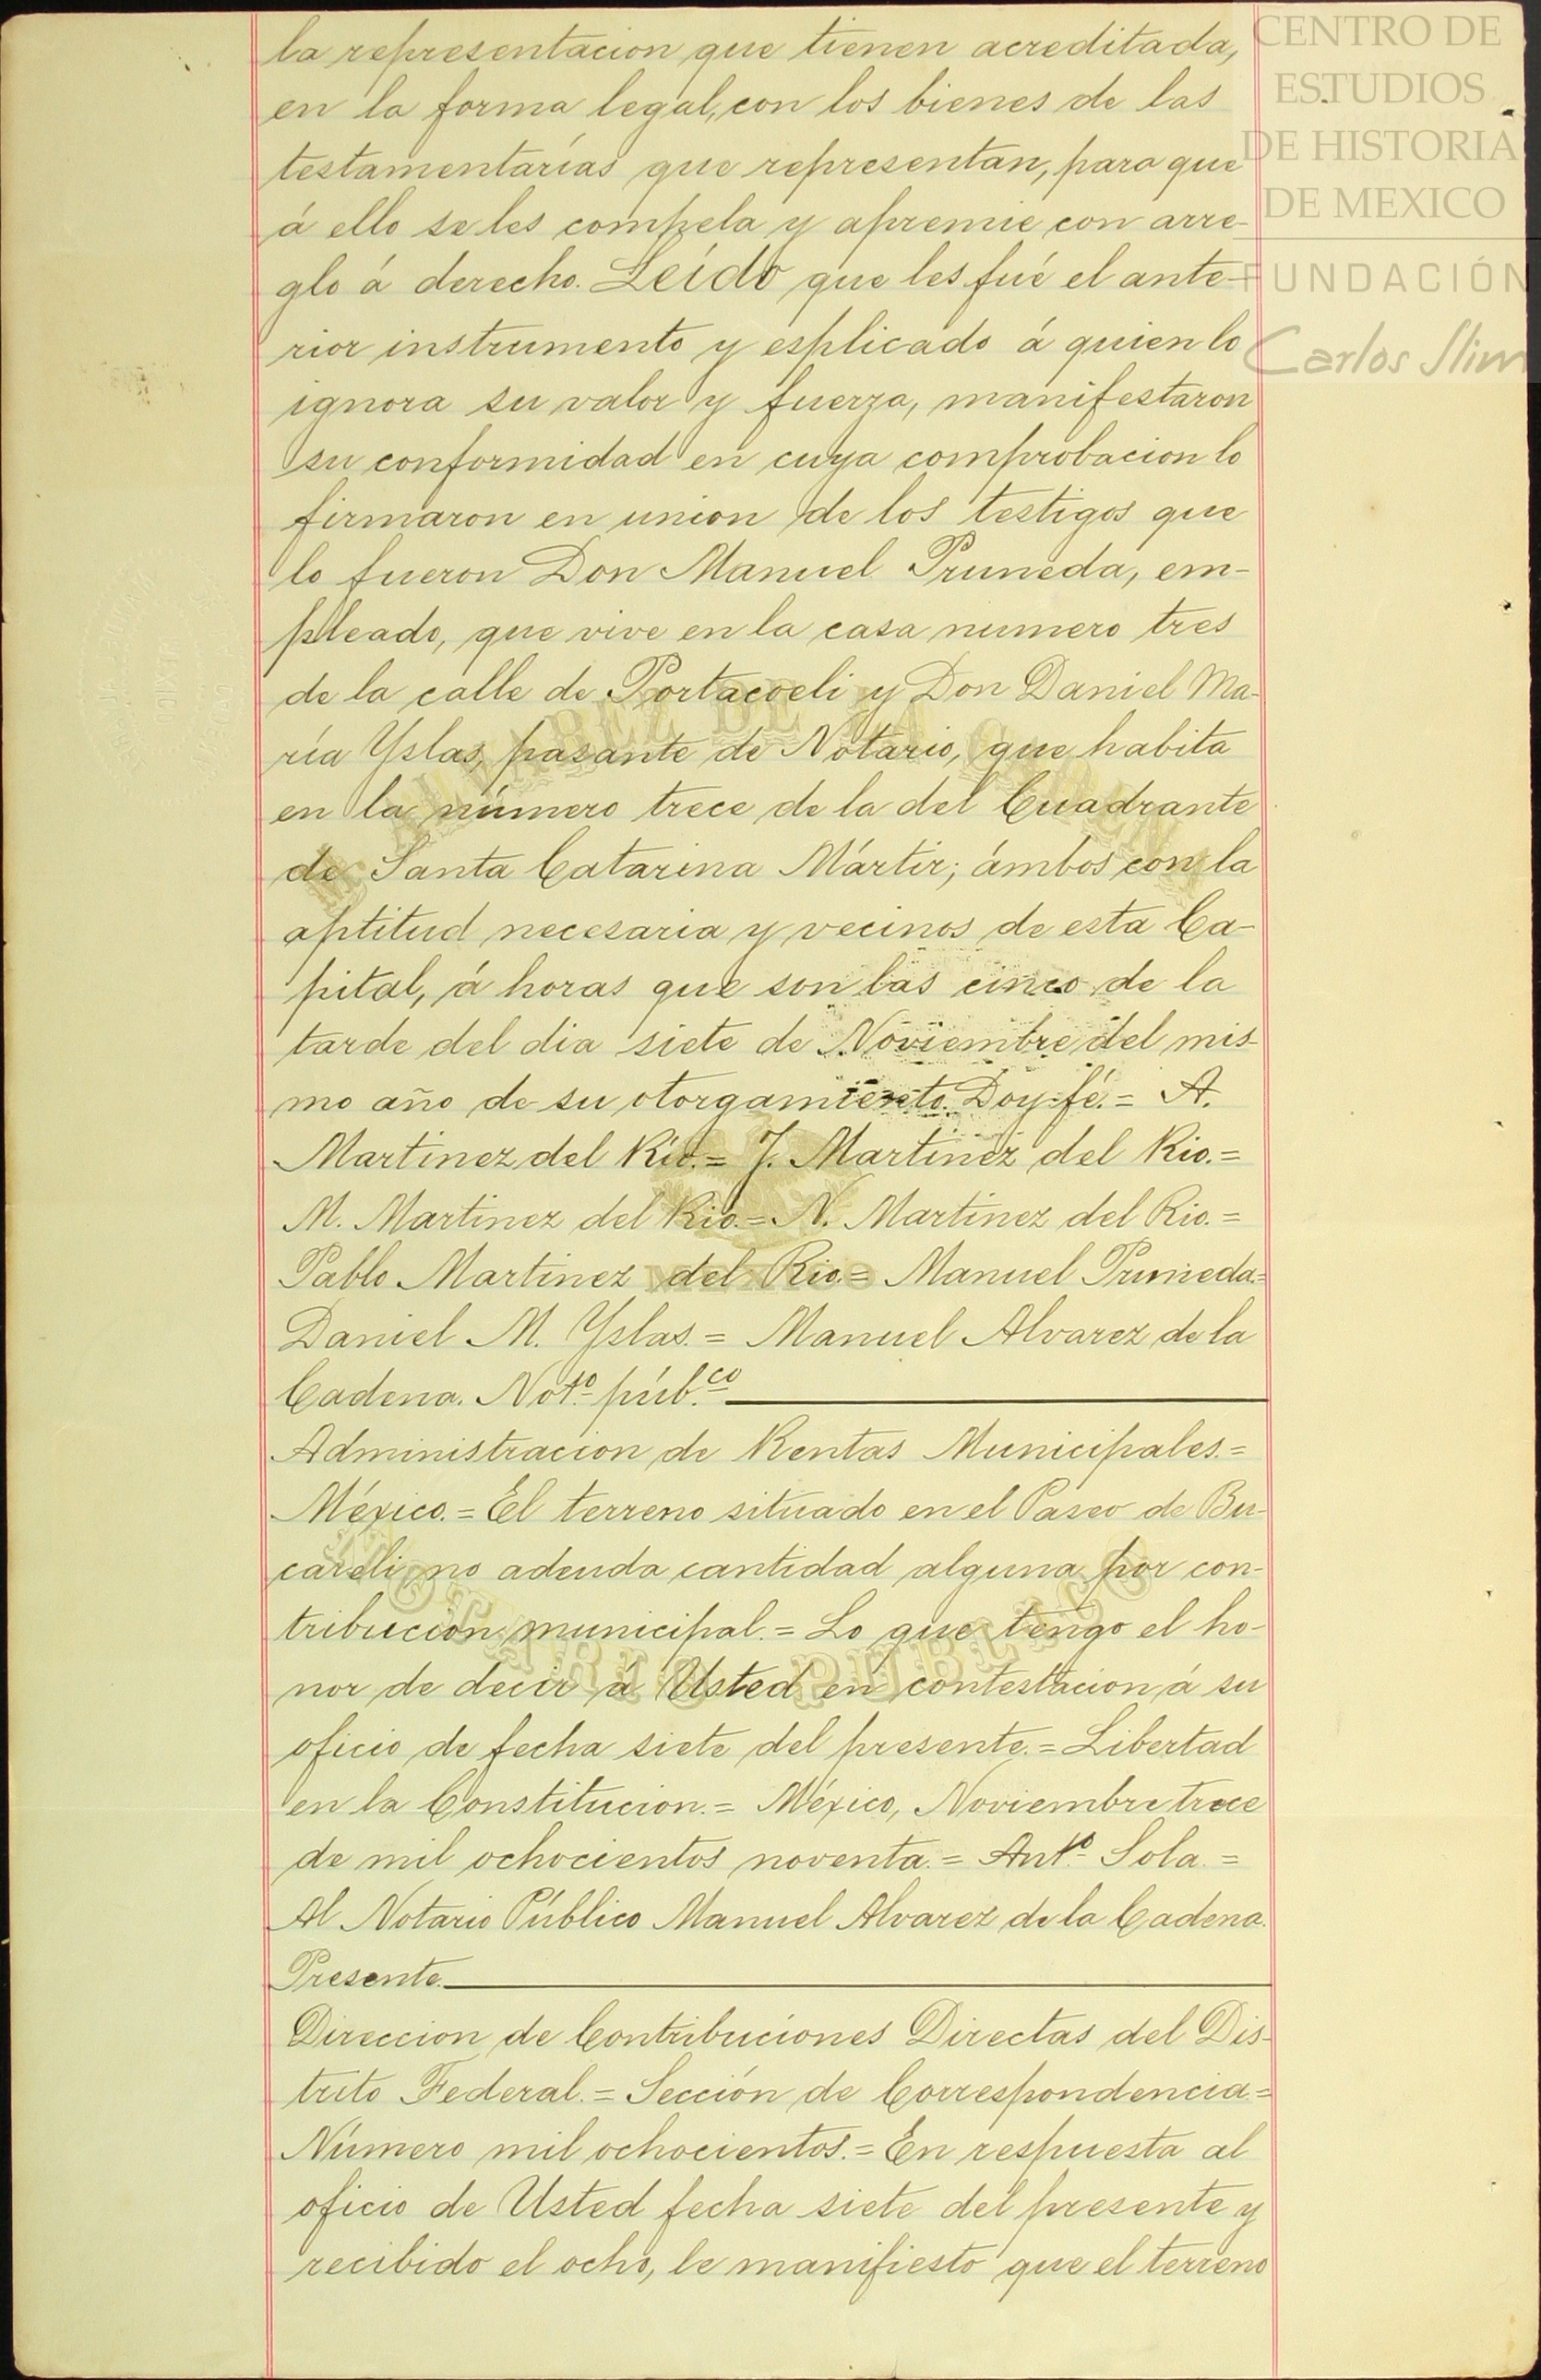 la representacion que tienen acreditada,
en la forma legal, con los bienes de las
testamentarías que representan, para que
á ello se les compela y apremie con arre-
glo á derecho. Leído que les fué el ante-
rior instrumento y esplicado á quien lo
ignora su valor y fuerza, manifestaron
su conformidad en cuya comprobacion lo
firmaron en union de los testigos que
lo fueron Don Manuel Pruneda, em-
pleado, que vive en la casa numero tres
de la calle de Portacoeli y Don Daniel Ma-
ría Yslas, pasante de Notario, que habita
en la número trece de la del Cuadrante
de Santa Catarina Mártir; ámbos con la
aptitud necesaria y vecinos de esta Ca-
pital, á horas que son las cinco de la
tarde del dia siete de Noviembre del mis-
mo año de su otorgamiento. Doy fé.= A.
Martinez del Rio.= J. Martinez del Rio.=
M. Martinez del Rio.= N. Martinez del Rio.=
Pablo Martinez del Rio= Manuel Pruneda.=
Daniel M. Yslas.= Manuel Alvarez de la
Cadena. Notº púb.co
Administracion de Rentas Municipales.=
México.= El terreno situado en el Paseo de Bu-
careli, no adeuda cantidad alguna por con-
tribucion municipal.= Lo que tengo el ho-
nor de decir á Usted en contestacion á su
oficio de fecha siete del presente.= Libertad
en la Constitucion.= México, Noviembre trece
de mil ochocientos noventa.= Antº Sola.=
Al Notario Público Manuel Alvarez de la Cadena.
Presente.
Direccion de Contribuciones Directas del Dis-
trito Federal.= Sección de Correspondencia=
Número mil ochocientos.= En respuesta al
oficio de Usted fecha siete del presente y
recibido el ocho, le manifiesto que el terreno
CENTRO DE
ESTUDIOS
DE HISTORIA
DE MEXICO
FUNDACIÓN
Carlos Slim
MEXICO
NOTARIO PUBLICO